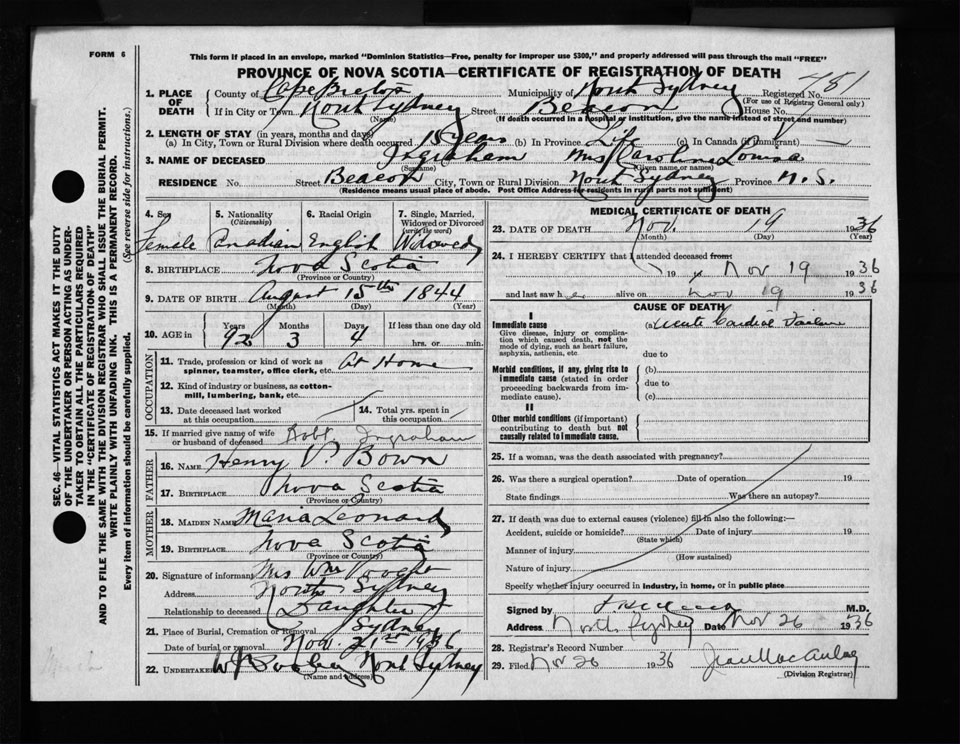 FORM 6
This form if placed in an envelope, marked "Dominion Statistics—Free, penalty for improper use $300," and properly addressed will pass through the mail "FREE"
PROVINCE OF NOVA SCOTIA—CERTIFICATE OF REGISTRATION OF DEATH
SEC. 46—VITAL STATISTICS ACT MAKES IT THE DUTY
OF THE UNDERTAKER OR PERSON ACTING AS UNDER-
TAKER TO OBTAIN ALL THE PARTICULARS REQUIRED
IN THE "CERTIFICATE OF REGISTRATION OF DEATH"
AND TO FILE THE SAME WITH THE DIVISION REGISTRAR WHO SHALL ISSUE THE BURIAL PERMIT.
WRITE PLAINLY WITH UNFADING INK. THIS IS A PERMANENT RECORD.
Every item of information should be carefully supplied. (See reverse side for instructions.)
1. PLACE OF DEATH County of Cape Breton Municipality of North Sydney Registered No. 451
(For use of Registrar General only)
If in City or Town North Sydney Street Beacon House No.
(Name) (If death occurred in a hospital or institution, give the name instead of street and number)
2. LENGTH OF STAY (in years, months and days)
(a) In City, Town or Rural Division where death occurred 18 years (b) In Province Life (c) In Canada (if immigrant) —
3. NAME OF DECEASED Ingraham Mrs Caroline Louisa
(Surname) (Given name or names)
RESIDENCE No. Street Beacon City, Town or Rural Division North Sydney Province N.S.
(Residence means usual place of abode. Post Office Address for residents in rural parts not sufficient)
4. Sex 5. Nationality (Citizenship) 6. Racial Origin 7. Single, Married, Widowed or Divorced (write the word)
Female Canadian English Widowed
8. BIRTHPLACE Nova Scotia
(Province or Country)
9. DATE OF BIRTH August 15th 1844
(Month) (Day) (Year)
10. AGE in Years Months Days If less than one day old
92 3 4 hrs. or min.
OCCUPATION
11. Trade, profession or kind of work as spinner, teamster, office clerk, etc. At Home
12. Kind of industry or business, as cotton-mill, lumbering, bank, etc.
13. Date deceased last worked at this occupation 14. Total yrs. spent in this occupation
15. If married give name of wife or husband of deceased Robt Ingraham
FATHER
16. NAME Henry V. Bown
17. BIRTHPLACE Nova Scotia
(Province or Country)
MOTHER
18. MAIDEN NAME Maria Leonard
19. BIRTHPLACE Nova Scotia
(Province or Country)
20. Signature of informant Mrs Wm Vooght
Address North Sydney
Relationship to deceased Daughter
21. Place of Burial, Cremation or Removal Sydney
Date of burial or removal Nov. 21st 1936
22. UNDERTAKER North Sydney
(Name and address)
MEDICAL CERTIFICATE OF DEATH
23. DATE OF DEATH Nov. 19 1936
(Month) (Day) (Year)
24. I HEREBY CERTIFY that I attended deceased from
19 Nov 19 1936
and last saw her alive on Nov 19 1936
CAUSE OF DEATH
I
Immediate cause (a) Acute Cardiac Failure
Give disease, injury or complication which caused death, not the mode of dying, such as heart failure, asphyxia, asthenia, etc
due to
Morbid conditions, if any, giving rise to immediate cause (stated in order proceeding backwards from immediate cause).
(b)
due to
(c)
II
Other morbid conditions (if important) contributing to death but not causally related to immediate cause.
25. If a woman, was the death associated with pregnancy?
26. Was there a surgical operation? Date of operation 19
State findings Was there an autopsy?
27. If death was due to external causes (violence) fill in also the following:—
Accident, suicide or homicide? Date of injury 19
(State which)
Manner of injury
(How sustained)
Nature of injury
Specify whether injury occurred in industry, in home, or in public place
Signed by M.D.
Address North Sydney Date Nov 26 1936
28. Registrar's Record Number
29. Filed Nov 26 1936 Jean MacAulay
(Division Registrar)